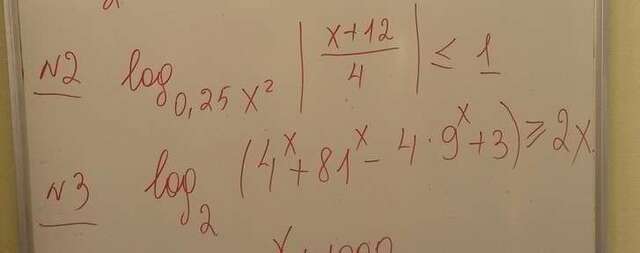 N2 log_{0,25x²} |(x+12)/4| ≤ 1
N3 log₂ (4^x + 81^x - 4·9^x + 3) ≥ 2x